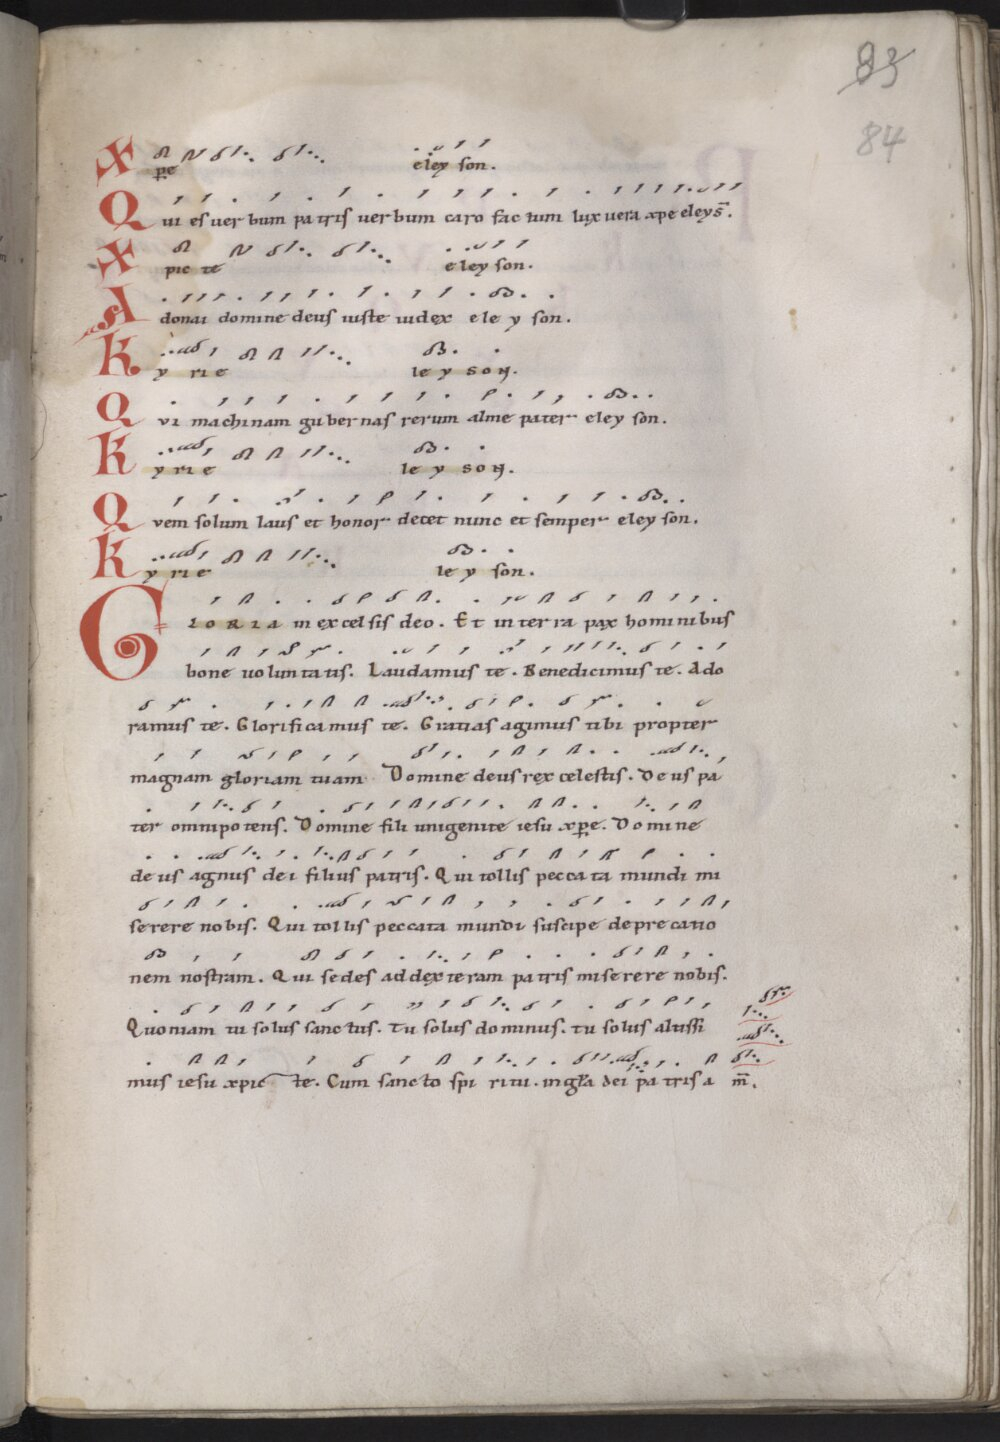 83
84
Xpe eleyson.
Qui es uerbum patris uerbum caro factum lux uera xpe eleys̄.
Xpicte eleyson.
Adonai domine deus iuste iudex eleyson.
Kyrie leyson.
Qvi machinam gubernas rerum alme pater eleyson.
Kyrie leyson.
Qvem solum laus et honor decet nunc et semper eleyson.
Kyrie leyson.
GLORIA in excelsis deo. Et in terra pax hominibus
bone uoluntatis. Laudamus te. Benedicimus te. Ado
ramus te. Glorificamus te. Gratias agimus tibi propter
magnam gloriam tuam Domine deus rex celestis. Deus pa
ter omnipotens. Domine fili unigenite iesu xpe. Domine
deus agnus dei filius patris. Qui tollis peccata mundi mi
serere nobis. Qui tollis peccata mundi suscipe deprecatio
nem nostram. Qui sedes ad dexteram patris miserere nobis.
Quoniam tu solus sanctus. Tu solus dominus. tu solus altissi
mus iesu xpic te. Cum sancto spiritu. in gła dei patris a m̄.